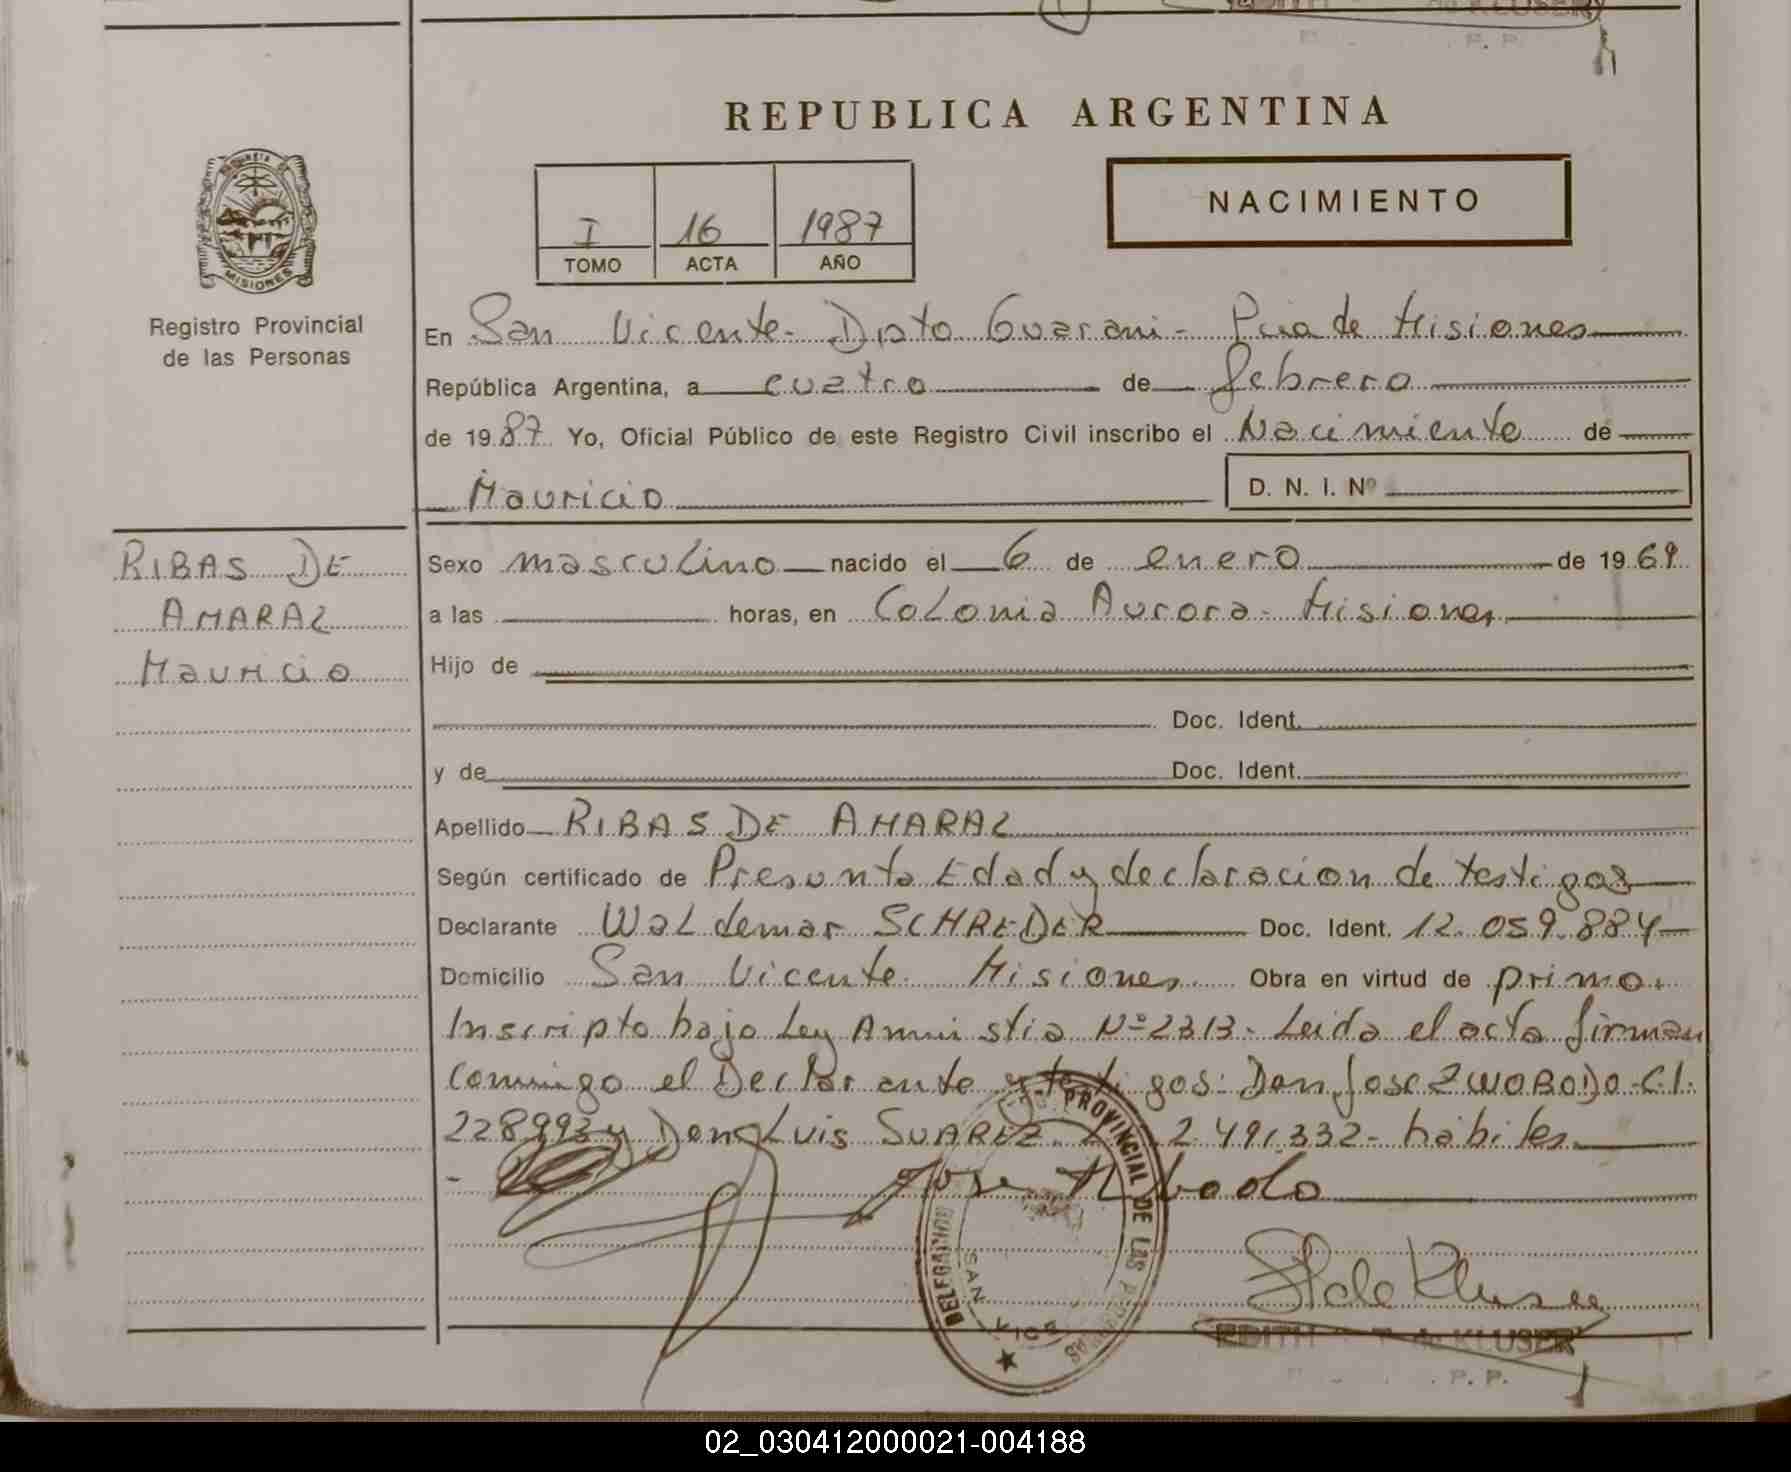 REPUBLICA ARGENTINA
NACIMIENTO
I 16 1987
TOMO ACTA AÑO
MISIONES
Registro Provincial
de las Personas
En San Vicente - Dpto Guarani - Pcia de Misiones
República Argentina, a cuatro de febrero
de 1987 Yo, Oficial Público de este Registro Civil inscribo el Nacimiento de
Mauricio D. N. I. Nº
RIBAS DE
AMARAL
Mauricio
Sexo masculino nacido el 6 de enero de 1969
a las horas, en Colonia Aurora - Misiones
Hijo de
Doc. Ident.
y de Doc. Ident.
Apellido RIBAS DE AMARAL
Según certificado de Presunta Edad y declaracion de testigos
Declarante Waldemar SCHREDER Doc. Ident. 12.059.884
Domicilio San Vicente Misiones Obra en virtud de primo.
Inscripto bajo Ley Amnistia Nº 2313 - Leida el acta firman
conmigo el Declarante y testigos: Don Jose ZWOBODO - C.I.
228993 y Don Luis SUAREZ 2 491.332 - habiles
Jose
DELEGACION PROVINCIAL DE LAS PERSONAS
SAN VICE
de Kluser
EDITH de KLUSER
P. P.
02_030412000021-004188